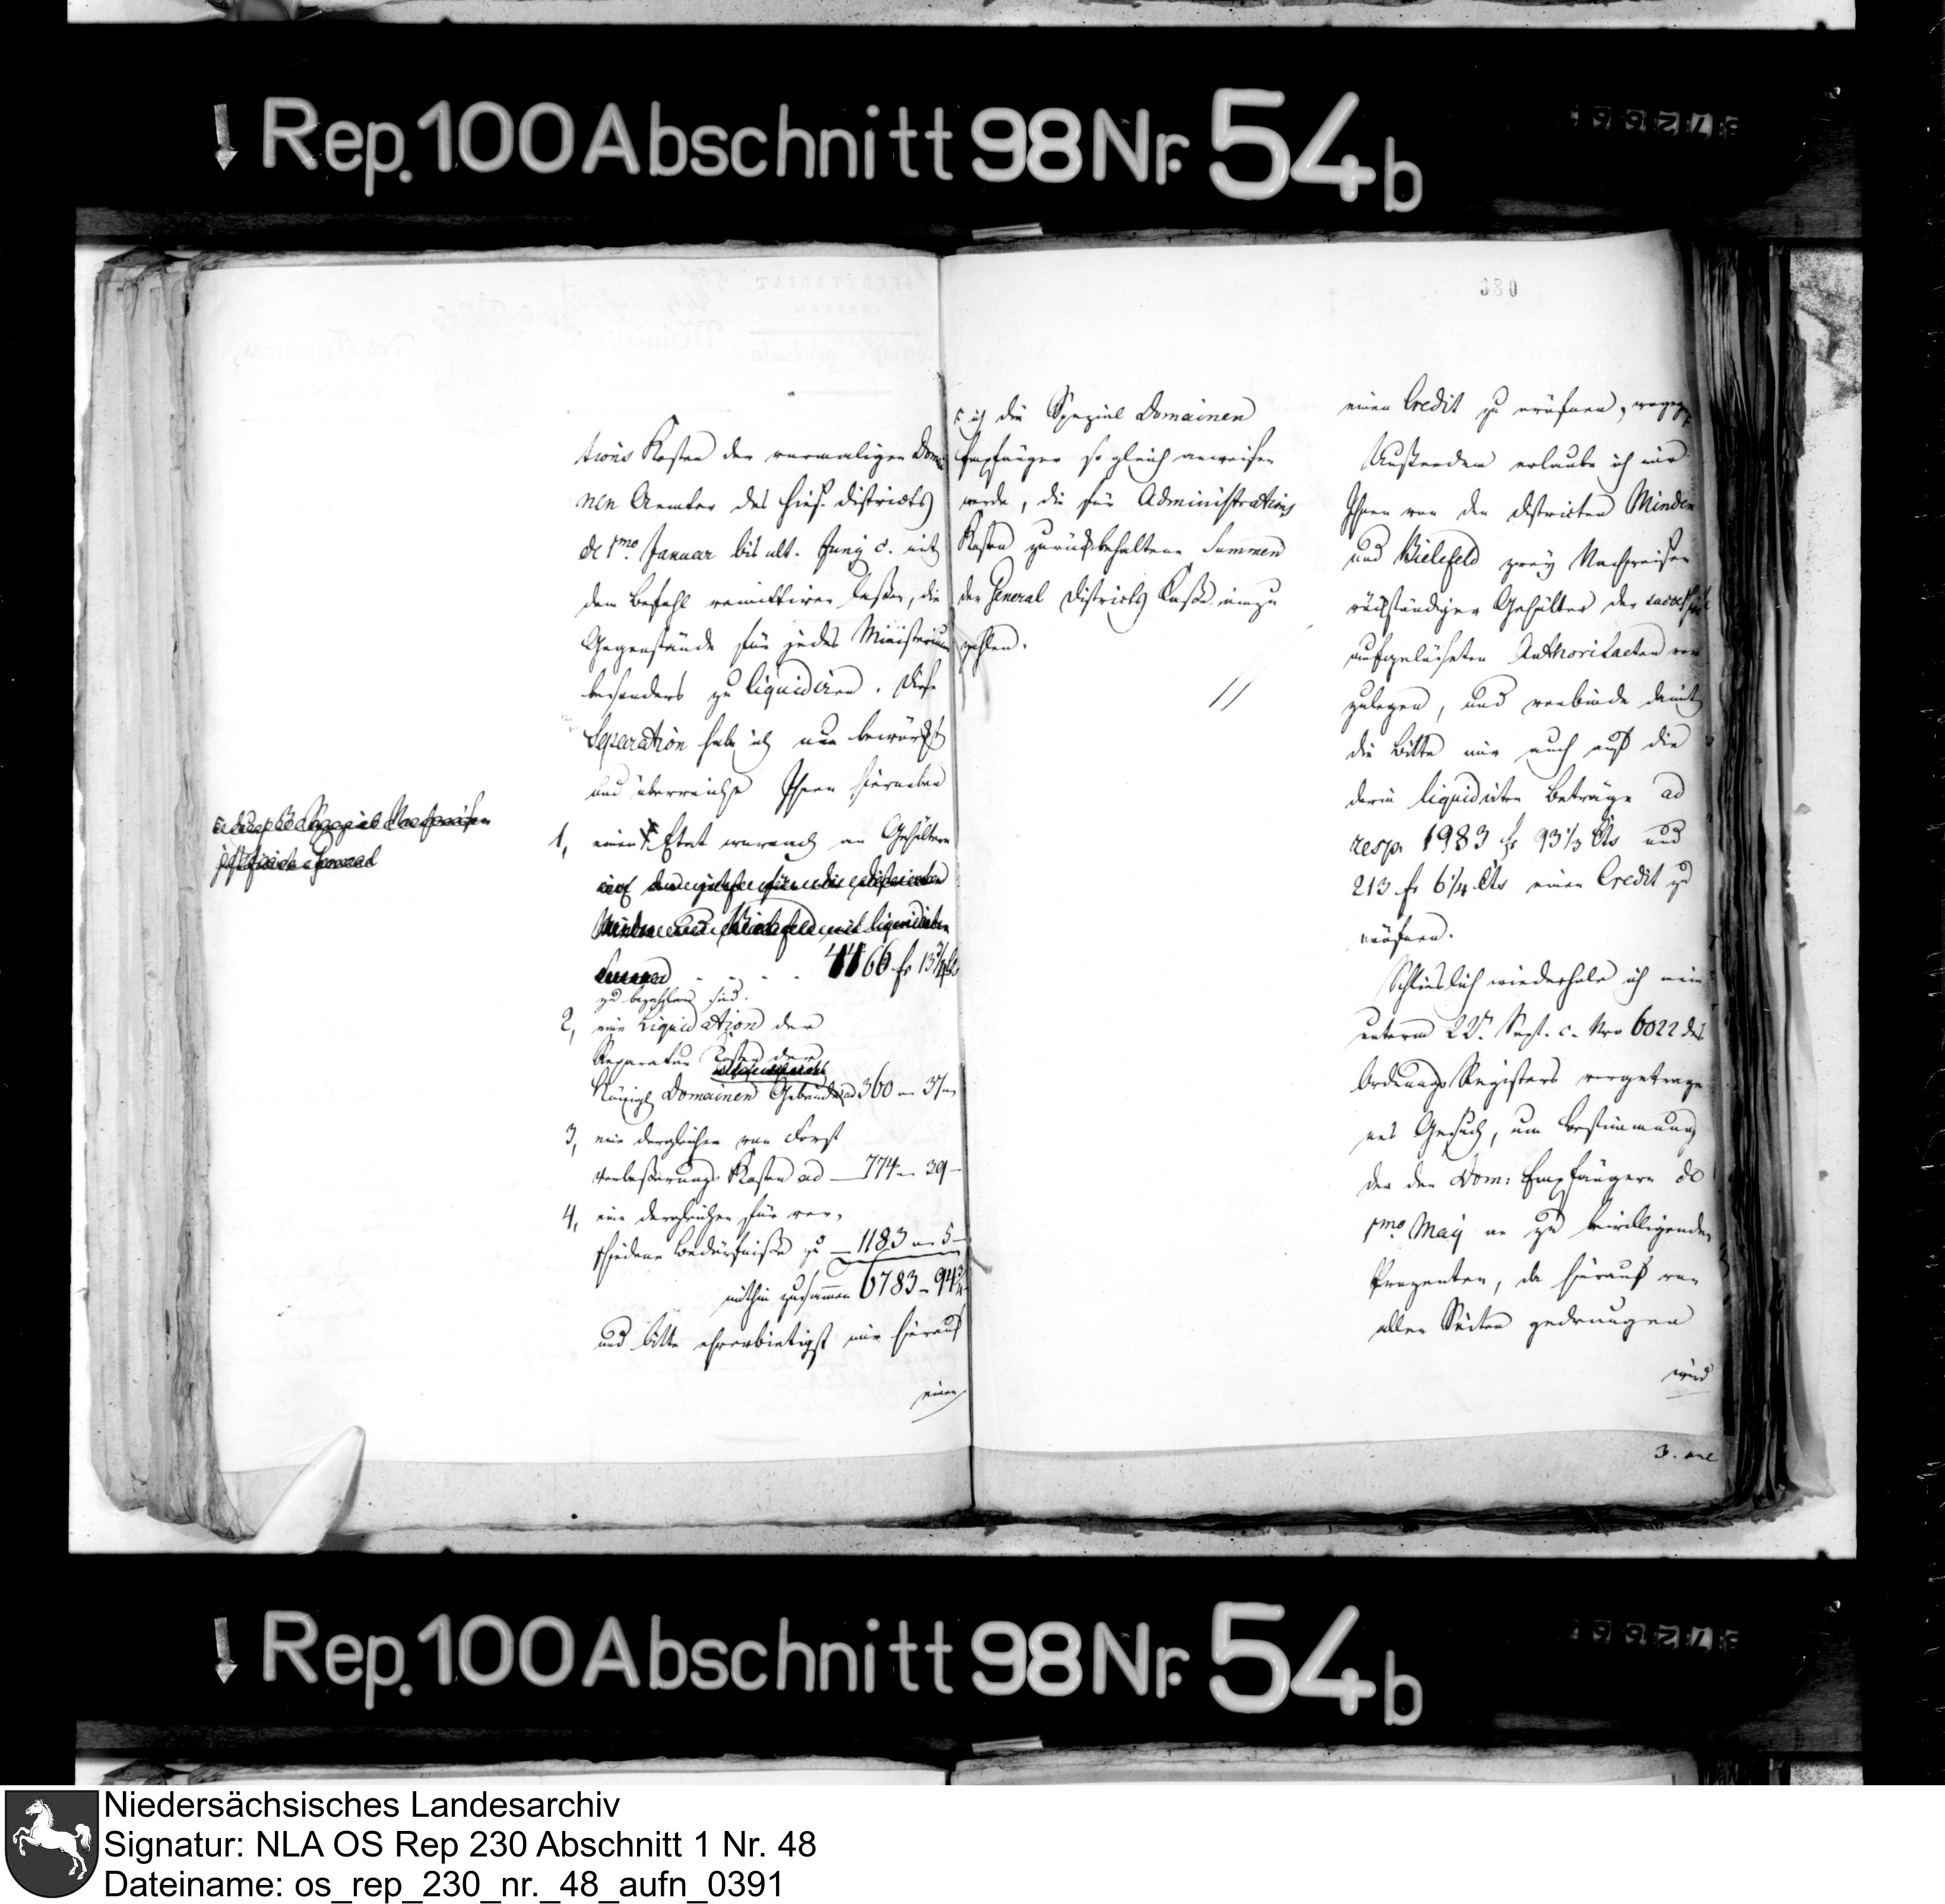 Rep. 100 Abschnitt 98 Nr. 54b
380
tions Kosten der vormaligen Domai
nen Aemter des hies. districts
de 1mo Januar bis ult. Juny c. mit
dem Befehl remittiren laßen, die
Gegenstände für jedes Ministerium
besonders zu liquidiren. Diese
Separation habe ich nun bewürkt
und überreiche Ihnen hierneben
1, einen Etat wornach an Gehältern
4466 fr 13 3/4 Cts
zu bezahlen sind.
2, eine Liquidation der
Reparatur Kosten der
Königl Domainen Gebäude ad 360 - 37 -
3, eine dergleichen von Forst
verbeßerungs Kosten ad - 774 - 39 -
4, eine dergleichen für ver-
schiedene Bedürfniße zu - 1183 - 5 -
mithin zusammen 6783 - 94 3/4
und bitte ehrerbietigst mir hierauf
einen
ich die Spezial Domainen
Empfänger sogleich anweisen
werde, die für Administrations
Kosten zurückbehaltene Summen
der General Districts Kaße einzu
zahlen.
einen Credit zu eröfnen, wogegen
Außerdem erlaube ich mir
Ihnen von den districten Minden
und Bielefeld zwey Nachweisen
rückständiger Gehälter der
aufgelöseten Authoritaeten vor
zulegen, und verbinde damit
die Bitte mir auch auf die
darin liquidirten Beträge ad
resp. 1983 fr 93 1/3 Cts und
213 fr 6 1/4 Cts einen Credit zu
eröfnen.
Schlieslich wiederhole ich mein
unterm 22n. Sept. c. Nro 6022 des
Ordnungs Registers vorgetrage
nes Gesuch, um Bestimmung
der den Dom: Empfängern de
1mo May an zu bewilligenden
Prozenten, da hierauf von
allen Seiten gedrungen
wird
Rep. 100 Abschnitt 98 Nr. 54b
Niedersächsisches Landesarchiv
Signatur: NLA OS Rep 230 Abschnitt 1 Nr. 48
Dateiname: os_rep_230_nr._48_aufn_0391